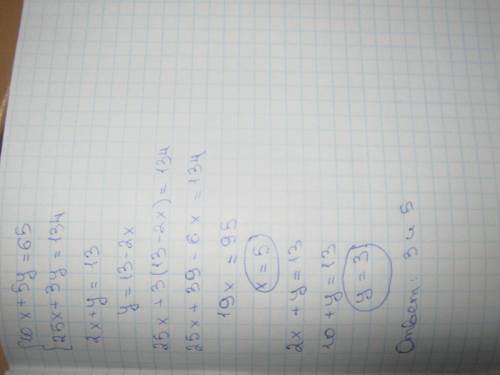 {10x + 5y = 65
{25x + 3y = 134
2x + y = 13
y = 13 - 2x
25x + 3(13 - 2x) = 134
25x + 39 - 6x = 134
19x = 95
x = 5
2x + y = 13
10 + y = 13
y = 3
Ответ: 3 и 5